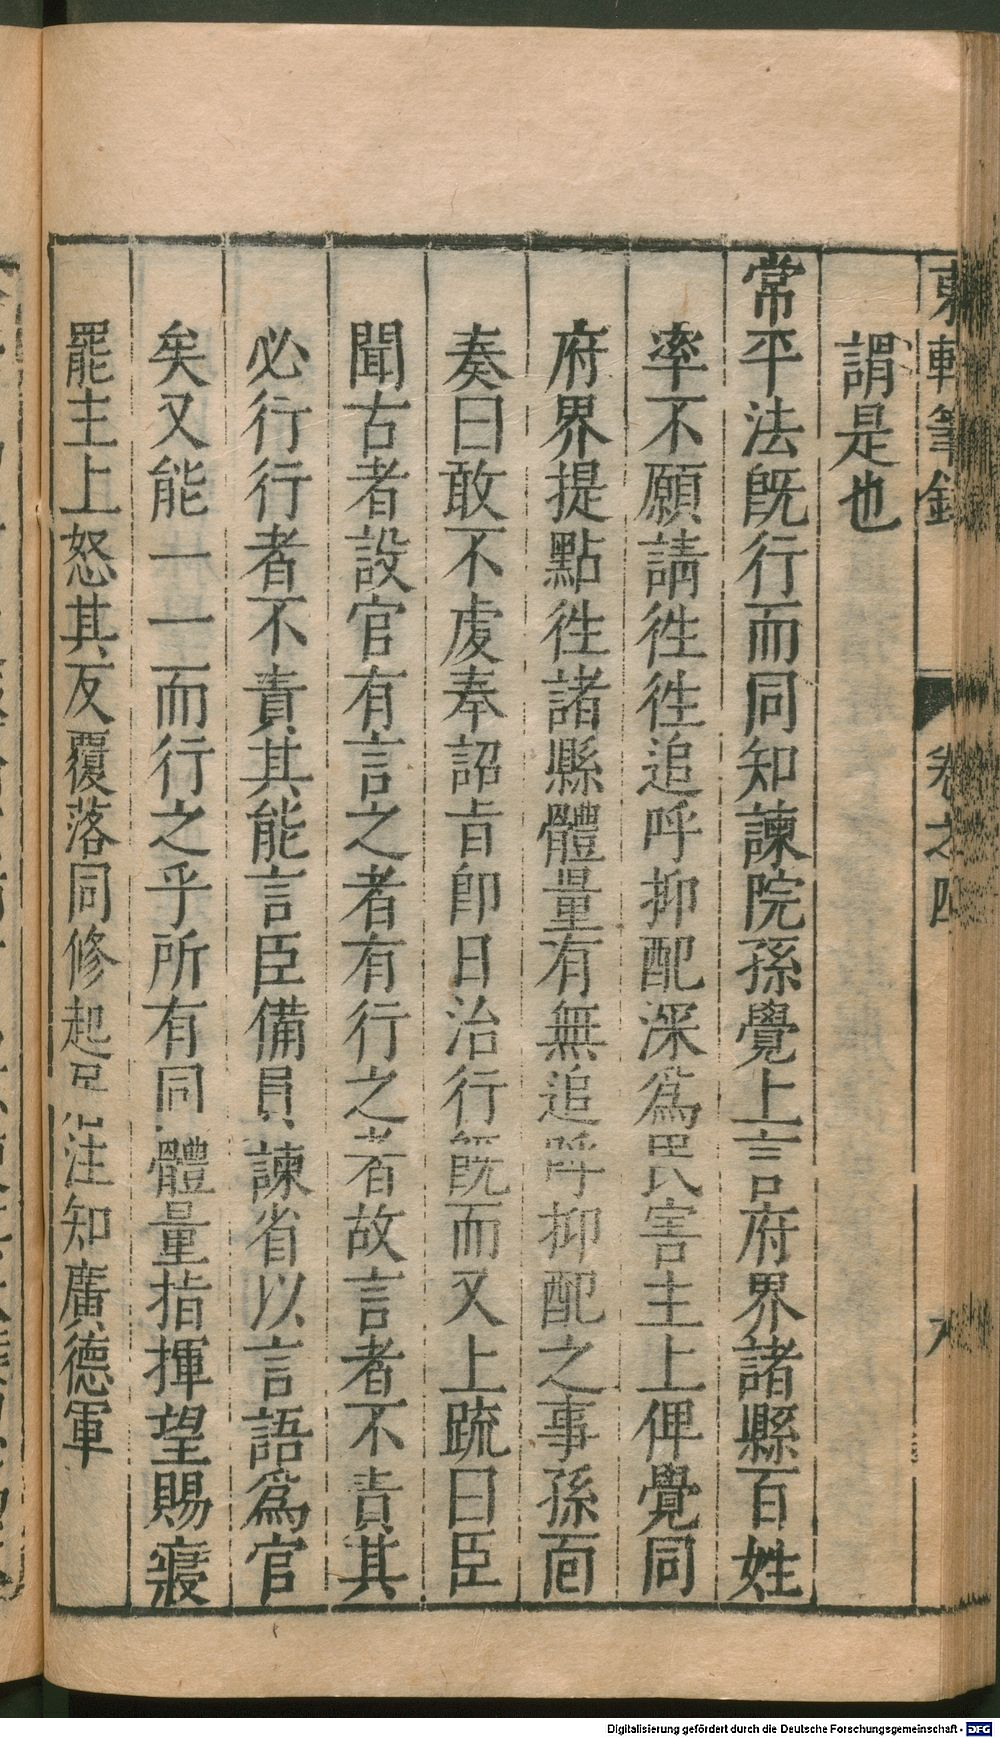 東軒筆錄 卷之四 八
謂是也
常平法旣行而同知諫院孫覺上言府界諸縣百姓
率不願請徃徃追呼抑配深爲民害主上俾覺同
府界提點徃諸縣體量有無追呼抑配之事孫面
奏曰敢不虔奉詔旨卽日治行旣而又上疏曰臣
聞古者設官有言之者有行之者故言者不責其
必行行者不責其能言臣備員諫省以言語爲官
矣又能一一而行之乎所有同體量指揮望賜寢
罷主上怒其反覆落同修起居注知廣德軍
Digitalisierung gefördert durch die Deutsche Forschungsgemeinschaft - DFG